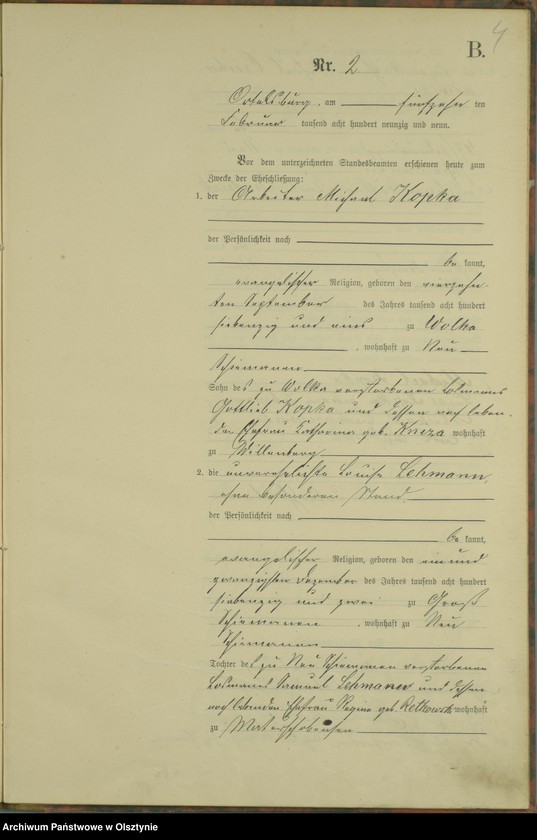 4
B.
Nr. 2
Ortelsburg, am fünfzehn ten
Februar tausend acht hundert neunzig und neun.
Vor dem unterzeichneten Standesbeamten erschienen heute zum
Zwecke der Eheschließung:
1. der Arbeiter Michael Kopka
der Persönlichkeit nach
be kannt,
evangelischer Religion, geboren den vierzehn
ten September des Jahres tausend acht hundert
siebenzig und eins zu Wolka
, wohnhaft zu Neu
Schiemanen
Sohn des zu Wolka verstorbenen Losmanns
Gottlieb Kopka und dessen noch leben-
den Ehefrau Catharina geb. Kniza wohnhaft
zu Willenberg
2. die unverehelichte Louise Lehmann,
ohne besonderen Stand
der Persönlichkeit nach
be kannt,
evangelischer Religion, geboren den ein und
zwanzigsten Dezember des Jahres tausend acht hundert
siebenzig und zwei zu Groß
Schiemanen , wohnhaft zu Neu
Schiemanen
Tochter des zu Neu Schiemanen verstorbenen
Losmanns Samuel Lehmann und dessen
noch lebenden Ehefrau Regine geb. wohnhaft
zu Materschobensee
Archiwum Państwowe w Olsztynie